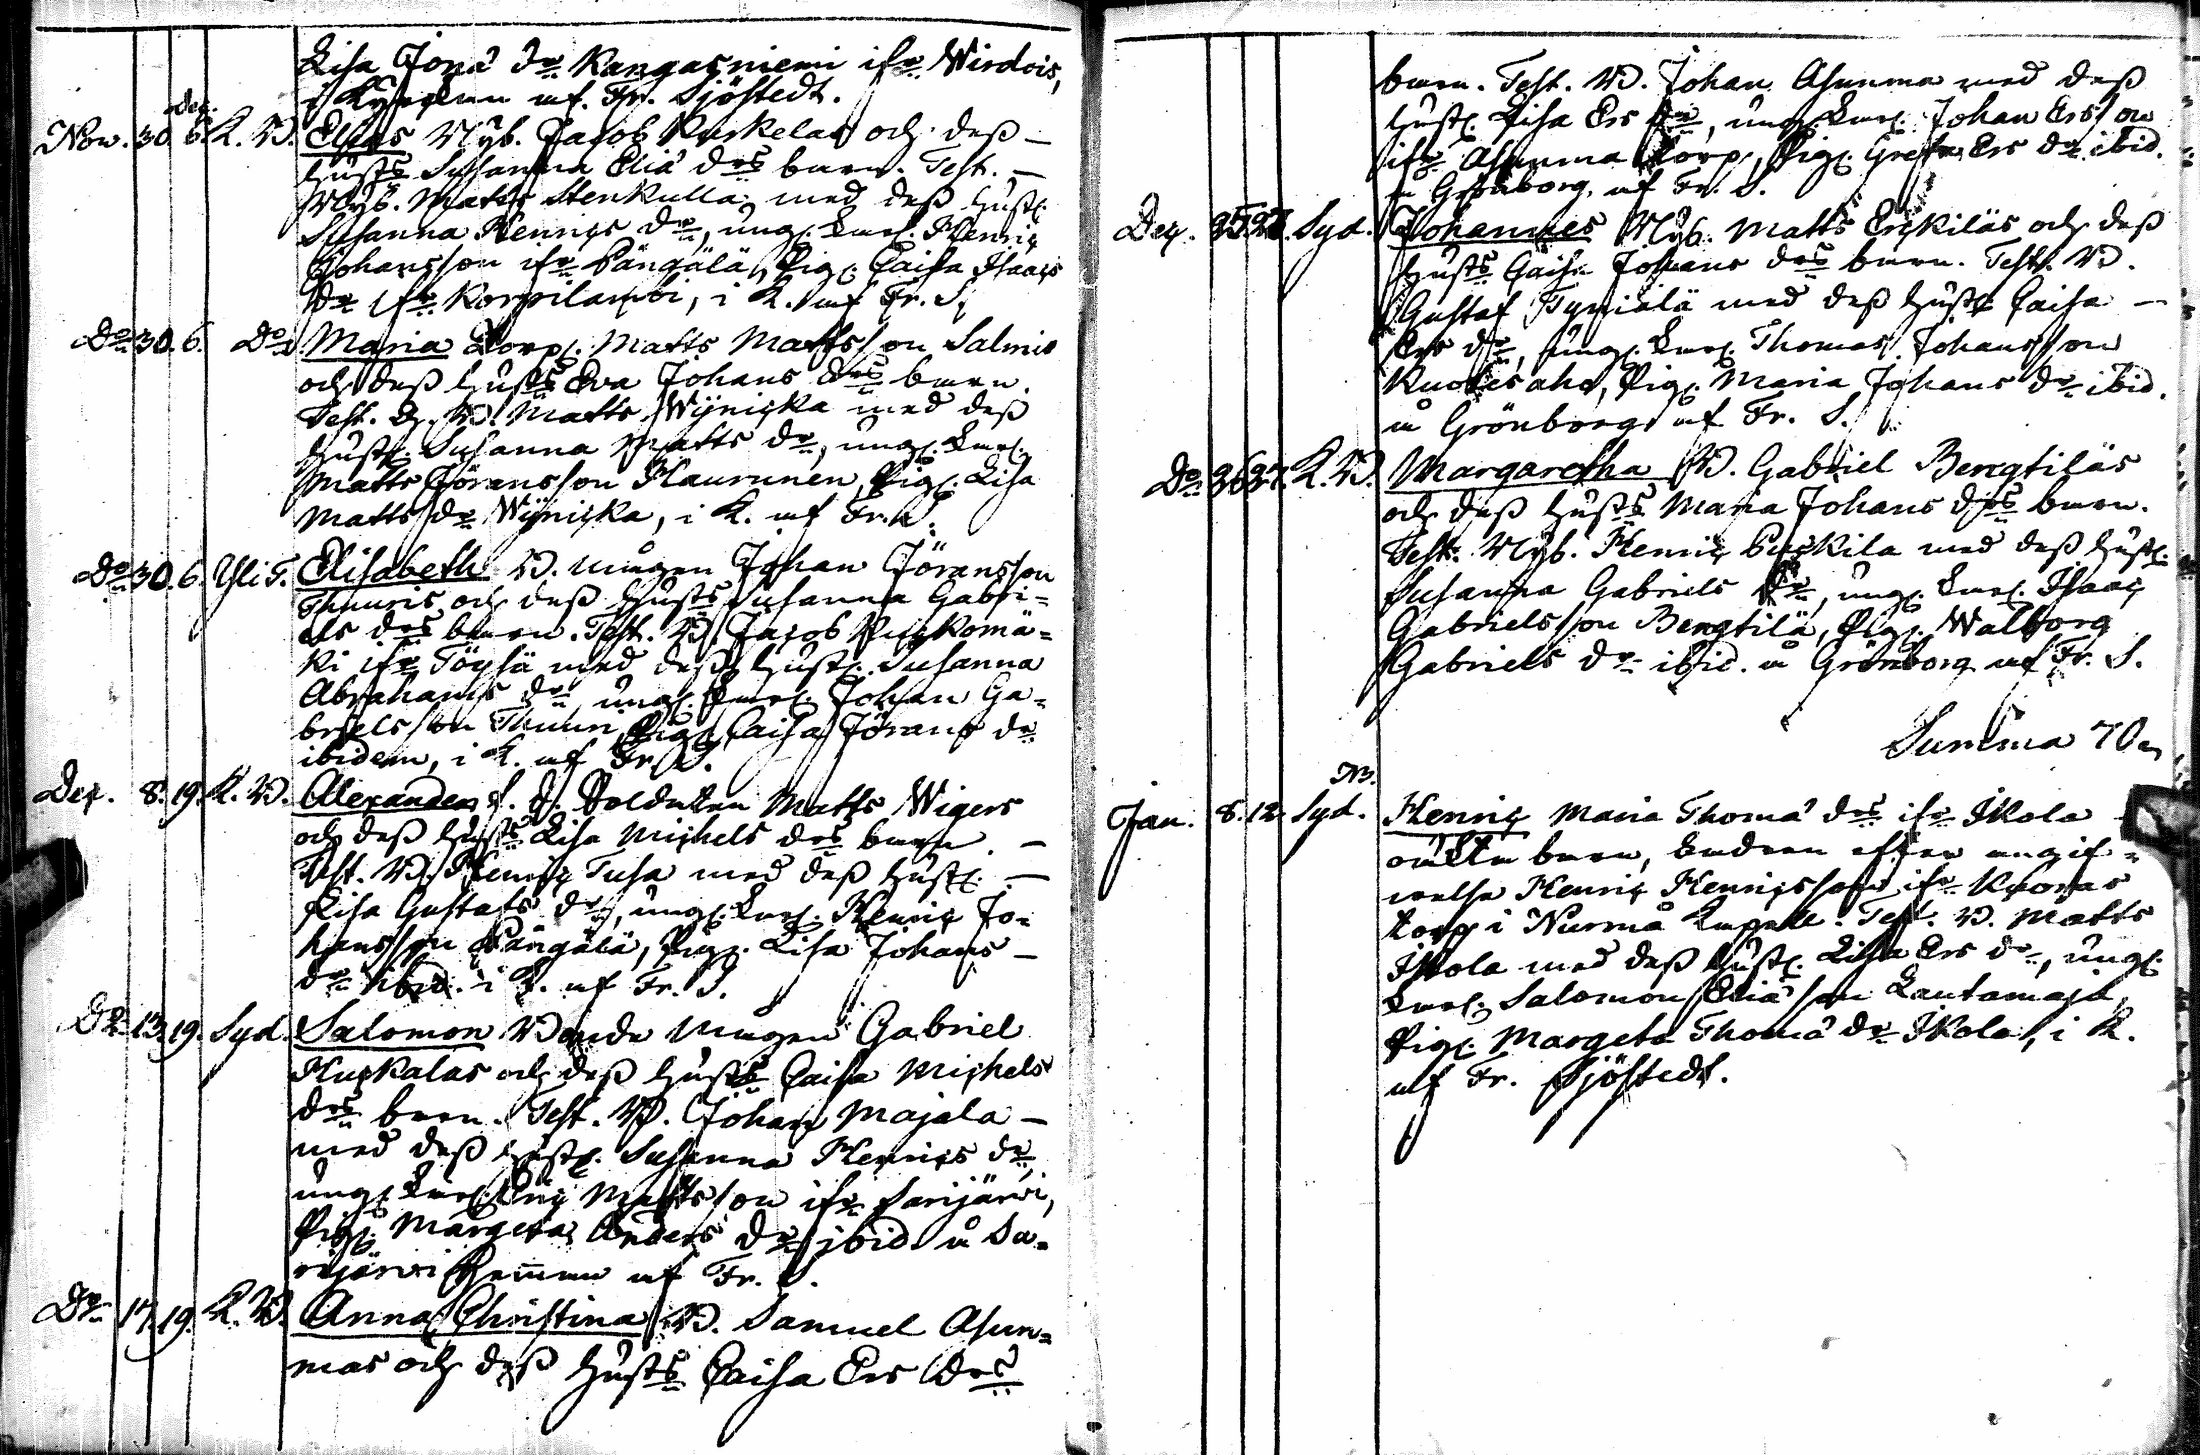 Lisa Jona dr Kangasniemi ifr Wirdois,
i Kyrkan af Fr. Sjöstedt.
Dec.
Nov. 30. 6. K. W. Elias Nyb. Jacob Kuckelas och deß
hust's Susanna Eliæ drs barn. Test.
Nyb. Matts Stenkulla med deß hust.
Susanna Henrics dr, ung. karl. Henric
Johansson ifr Pängälä, Pig. Caisa Isaacs
dr ifr Korpilambi, i K. af Fr. S.
Do 30. 6. Do Maria Torp. Matts Mattsson Salmis
och deß hust's Eva Johans drs barn.
Test. W. Matts Wynicka med deß
hust. Susanna Matts dr, ung. karl.
Matts Göransson Haurunen, Pig. Lisa
Matts dr Wynicka, i K. af Fr. S.
Do 30. 6. Yli T. Elisabeth W. mågen Johan Jöransson
Thuuris och deß hust's Susanna Gabri=
els drs barn. Test. W. Jacob
ki ifr Töysä med deß hust. Susanna
Abrahams dr, ung. karl. Johan Ga=
brielsson Thuuri, Pig. Caisa Jörans dr
ibidem, i K. af Fr. S.
Dec. 8. 19. K. W. Alexander f. d. Soldaten Matts Wigers
och deß hust's Lisa Michels drs barn.
Test. W. Henric Tusa med deß hust.
Lisa Gustafs dr, ung. karl. Henric Jo=
hansson Pängälä, Pig. Lisa Johans
dr ibid. i K. af Fr. S.
Do 13. 19. Syd. Salomon Bonde mågen Gabriel
Huckalas och deß hust's Caisa Michels
drs barn. Test. W. Johan Majala
med deß hust. Susanna Henrics dr,
ung. karl. Eric Mattsson ifr Sarijärvi,
Pig. Margeta Anders dr ibid. å Sa=
rijärvi Hemman af Fr. S.
Do 17. 19. K. W. Anna Christina W. Samuel Asun=
mas och deß hust's Caisa Ers drs
barn. Test. W. Johan Asunma med deß
hust. Lisa Ers dr, ung. karl. Johan Ersson
ifr Asunma torp, Pig. Greta Ers dr ibid.
å Grönborg, af Fr. S.
Dec. 25. 27. Syd. Johannes Nyb. Matts Erckiläs och deß
hust's Caisa Johans drs barn. Test. W.
Gustaf med deß hust. Caisa
Ers dr, ung. karl. Thomas Johansson
Kuokesaho, Pig. Maria Johans dr ibid.
å Grönborg af Fr. S.
Do 26. 27. K. W. Margaretha W. Gabriel Bengtiläs
och deß hust's Maria Johans drs barn.
Test. Nyb. Henric Puckila med deß hust.
Susanna Gabriels dr, ung. karl. Isaac
Gabrielsson Bengtilä, Pig. Walborg
Gabriels dr ibid. å Grönborg af Fr. S.
Summa 70
NB.
Jan. 8. 12. Syd. Henric Maria Thomæ drs ifr Ikola
oäkta barn, fadren efter angif=
welse Henric Henricsson ifr
torp i Nurmå Capell. Test. W. Matts
Ikola med deß hust. Lisa Ers dr, ung.
karl. Salomon Eliæson Lautamaja,
Pig. Margeta Thomæ dr Ikola, i K.
af Fr. Sjöstedt.